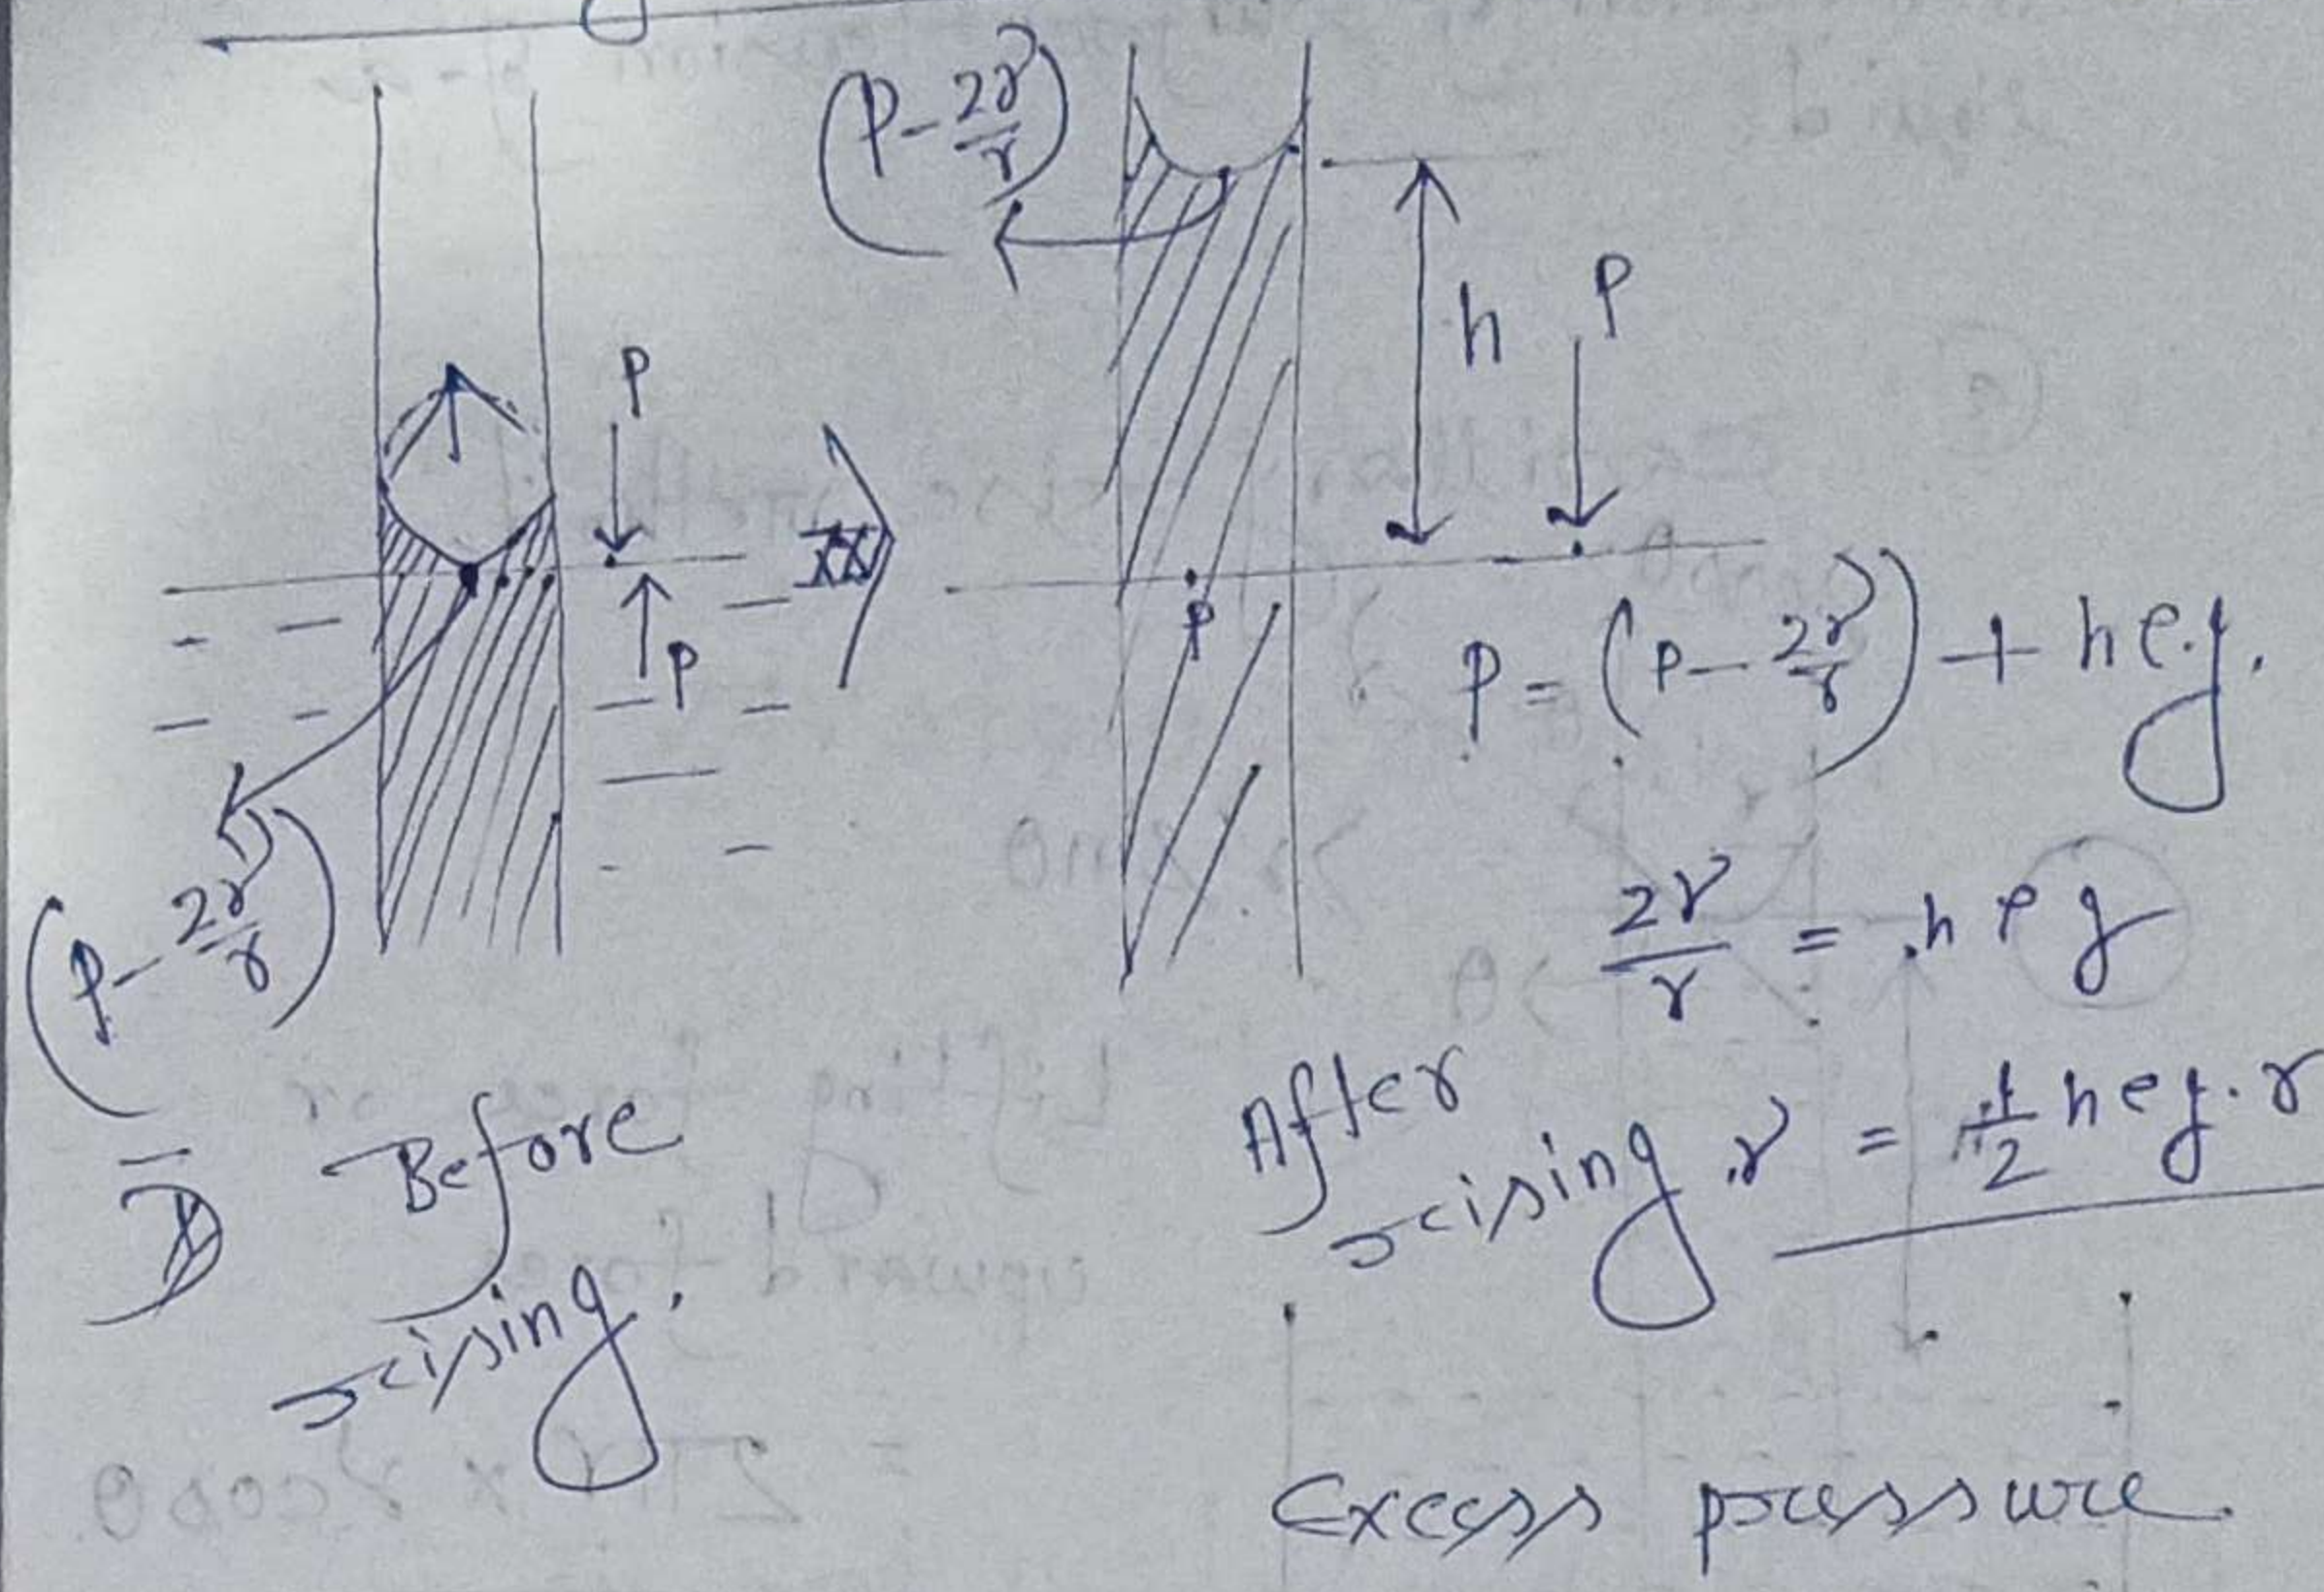 (P - 2γ/r)
h
P
P
P
P
P = (P - 2γ/r) + hρg.
(P - 2γ/r)
2γ/r = hρg
Before
rising.
After
rising
γ = 1/2 hρg.r
Excess pressure